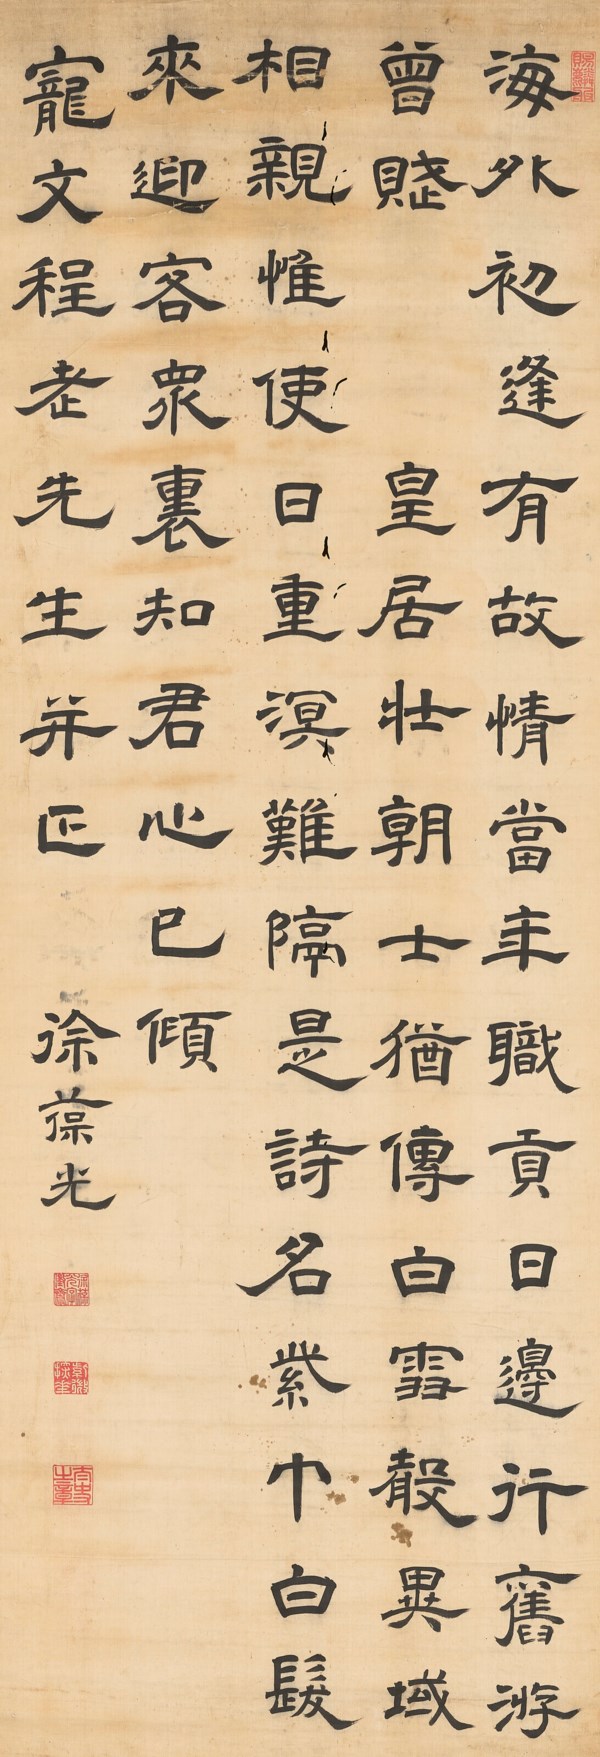 海外初逢有故情當年職貢日邊行舊游
曾賤 皇居壯朝士猶傳白雪聲異域
相親惟使日重溟難隔是詩名紫巾白髮
來迎客衆裏知君心已傾
寵文程老先生并正 徐葆光